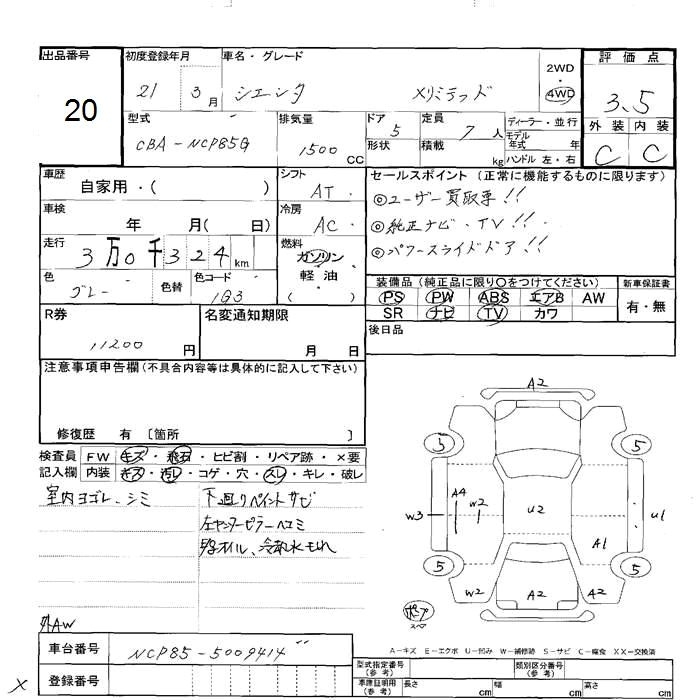 出品番号 初度登録年月 車名・グレード 2WD 評価点
20 21 3月 シエンタ Xリミテッド ・4WD 3.5
型式 排気量 ドア 定員 ディーラー・並行 外装 内装
CBA-NCP85G 1500CC 5 7人 モデル年式 年 C C
形状 積載 kg ハンドル 左・右
車歴 自家用・( ) シフト AT セールスポイント (正常に機能するものに限ります)
車検 年 月( 日) 冷房 AC ◎ユーザー買取車!!
◎純正ナビ・TV!!
走行 3万0千324km 燃料 ガソリン ◎パワースライドドア!!
軽油
( )
色 グレー 色替 色コード 1G3
装備品(純正品に限り○をつけてください) 新車保証書
PS PW ABS エアB AW 有・無
SR ナビ TV カワ
R券 11200円 名変通知期限 月 日 後日品
注意事項申告欄(不具合内容等は具体的に記入して下さい)
修復歴 有 〔箇所 〕
検査員 FW キズ・飛石・ヒビ割・リペア跡・×要
記入欄 内装 キズ・汚レ・コゲ・穴・スレ・キレ・破レ
室内ヨゴレ、シミ 下廻りペイントサビ
左センターピラーヘコミ
オイル、冷却水モれ
外AW
A2
3 5
A4 W2
W3 U2 U1
A1
5 5
W2 A2 A2
スペ
A-キズ E-エクボ U-凹み W-補修跡 S-サビ C-腐食 XX-交換済
車台番号 NCP85-5009414
登録番号
X
型式指定番号(参考) 類別区分番号(参考)
車庫証明用(参考) 長さ cm 幅 cm 高さ cm